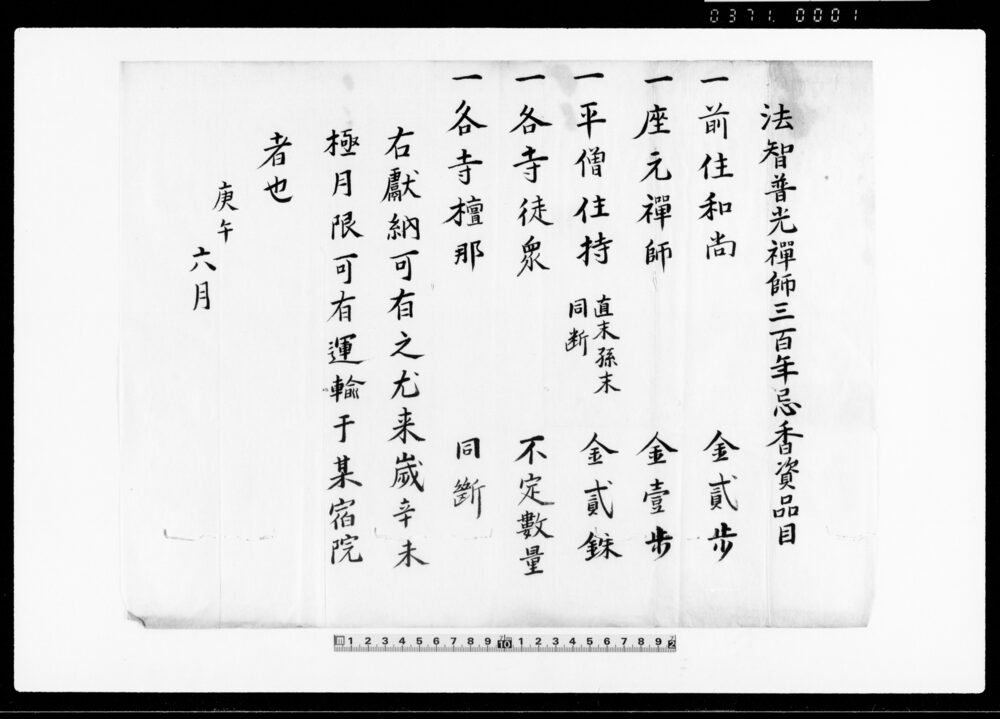 0371. 0001
法智普光禪師三百年忌香資品目
一前住和尚 金貳步
一座元禪師 金壹步
一平僧住持 直末孫末同断 金貳銖
一各寺徒衆 不定數量
一各寺檀那 同斷
右獻納可有之尤来歲辛未
極月限可有運輸于某宿院
者也
庚午
六月
1 2 3 4 5 6 7 8 9 10 1 2 3 4 5 6 7 8 9 2